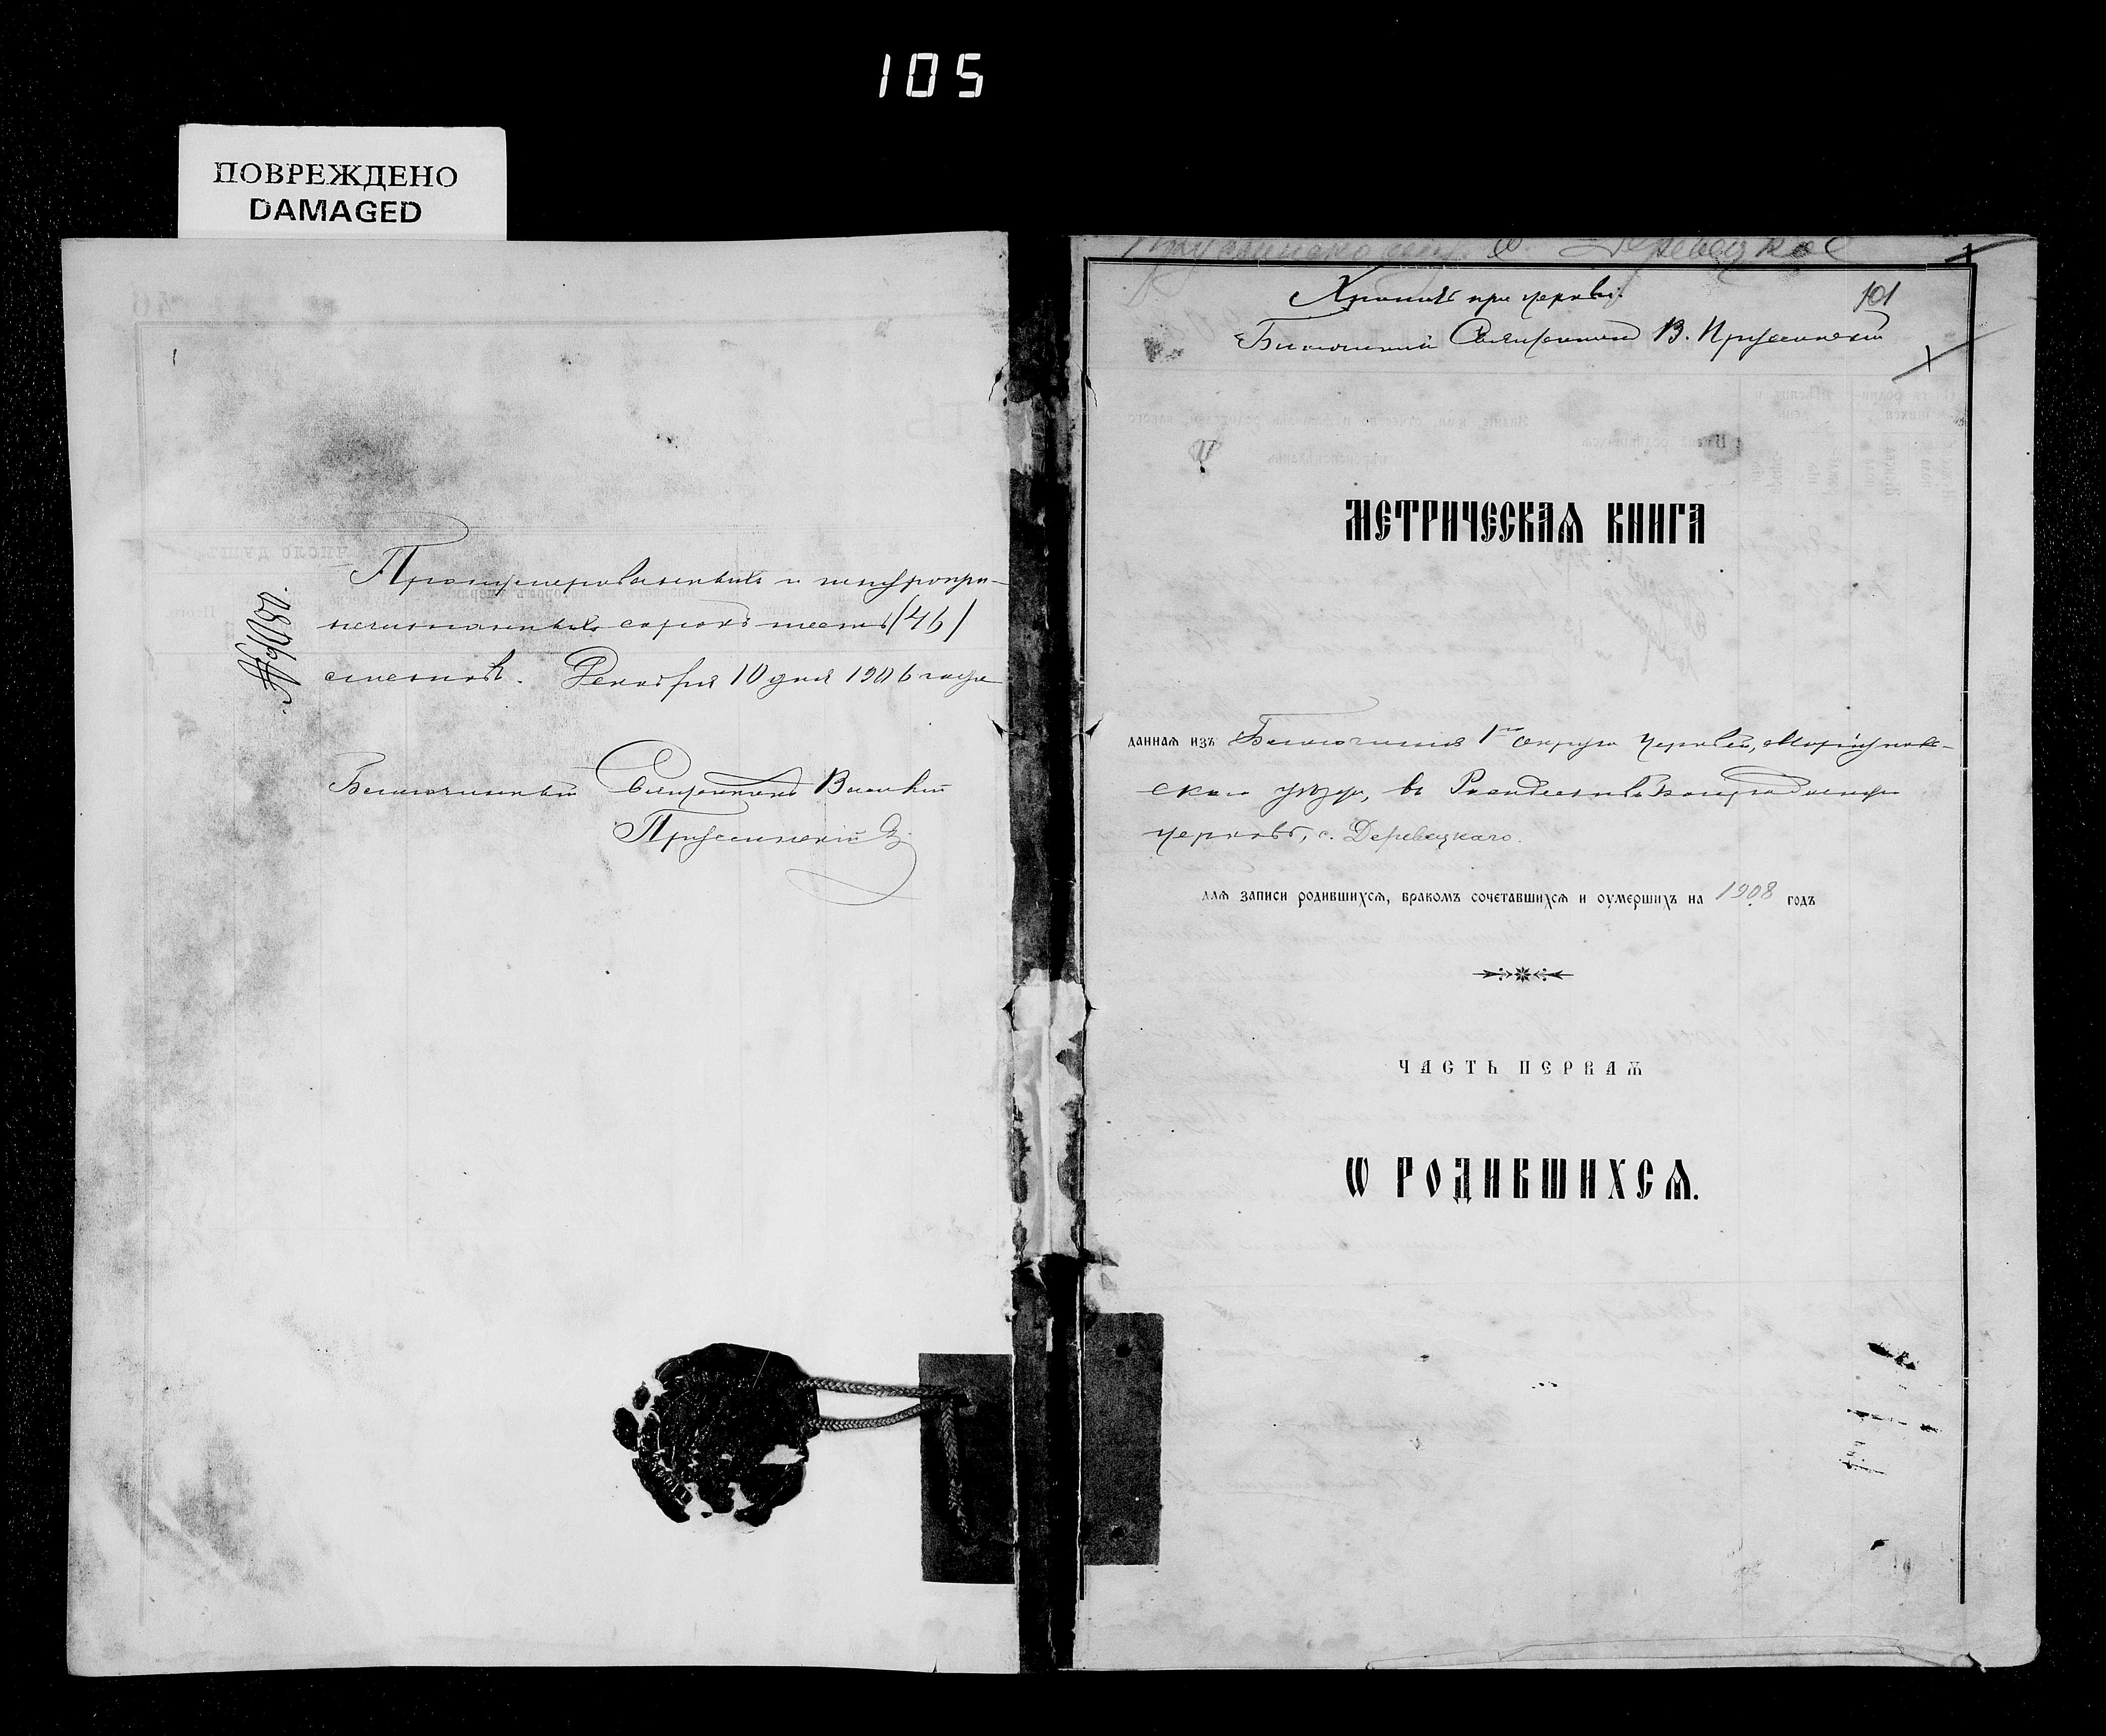 105
ПОВРЕЖДЕНО
DAMAGED
Пронумерованныхъ и шнуропри-
печатанныхъ сорокъ шесть (46)
листовъ. Декабря 10 дня 1906 года
Благочинный Священникъ Василій
Пруссинскій
с. Деревецкое
Хранить при церкви.
101
Благочинный Священникъ В. Пруссинскій
МЕТРИЧЕСКАѦ КНИГА
даннаѧ изъ Благочинія 1го округа церквей, Маріуполь-
скаго уѣзда, въ Рождество-Богородичную
церковь, с. Деревецкаго.
длѧ записи родившихсѧ, бракомъ сочетавшихсѧ и оумершихъ на 1908 годъ
ЧАСТЬ ПЕРВАѦ
Ѡ РОДИВШИХСѦ.